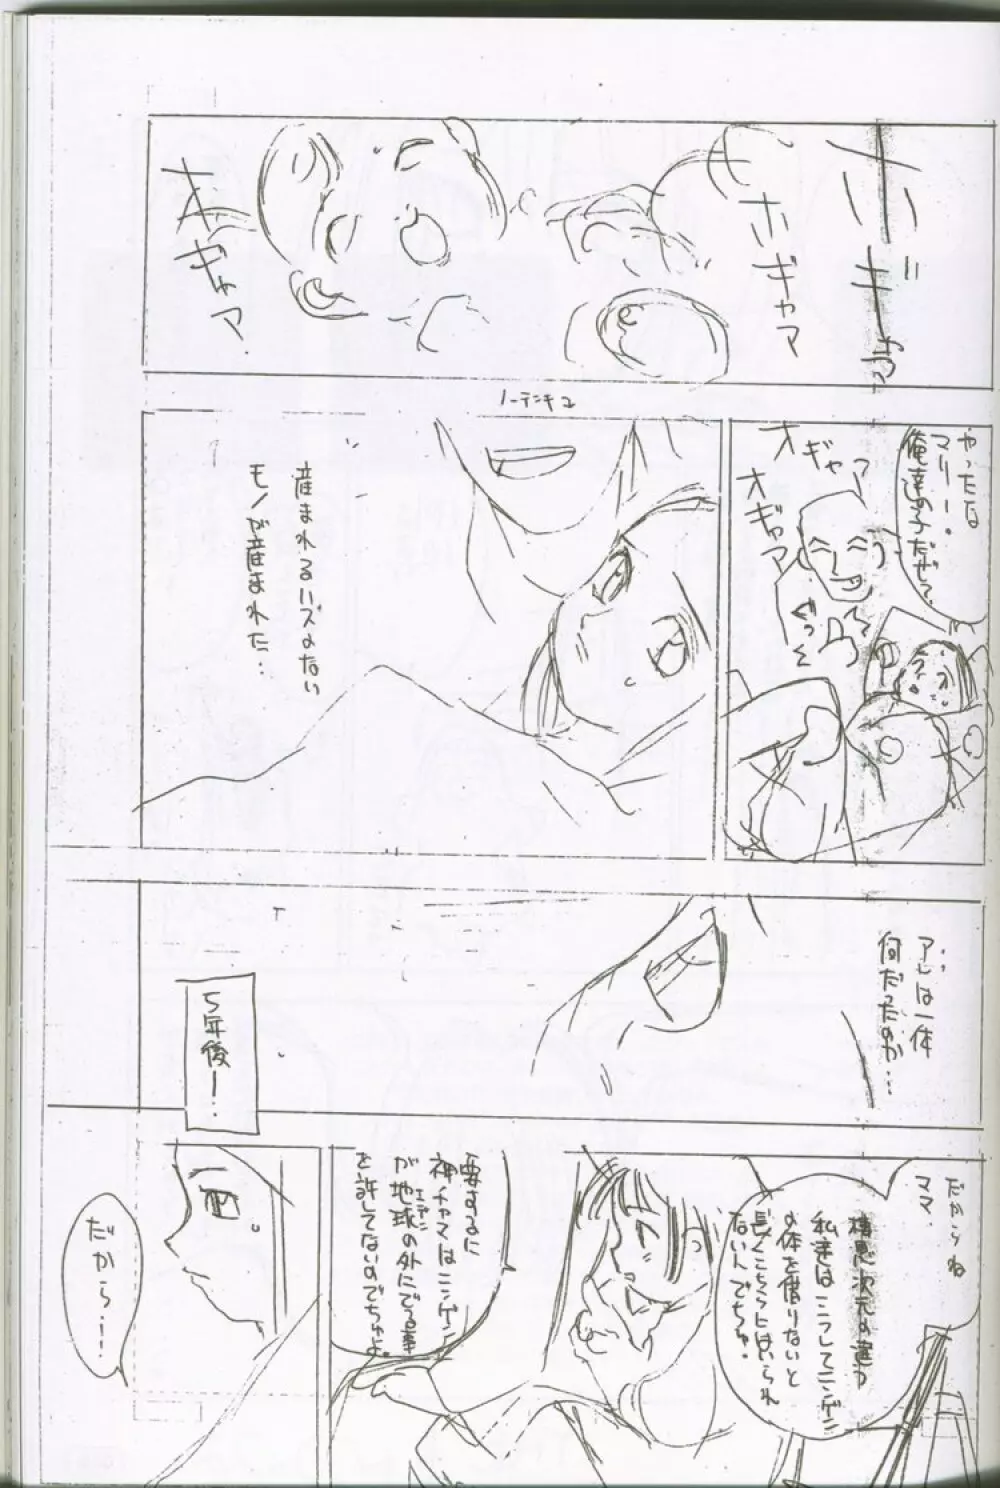 ホギャア
ホギャマ
オギャマ
ノーテンキュ
やったな
マリー。
俺達の子だぜて
オギャア
オギャマ
ぐっ
産まれるハズのない
モノが産まれた…
アレは一体
何だったのか…
5年後ー！
だからね
ママ
次元の違う
私達はこうしてニンゲン
の体を借りないと
長くこっちにはいられ
ないんでちゅ。
要するに
神チャマはニンゲン
が地球の外にでる事
エデン
を許してないのでちゅよ。
だから…！